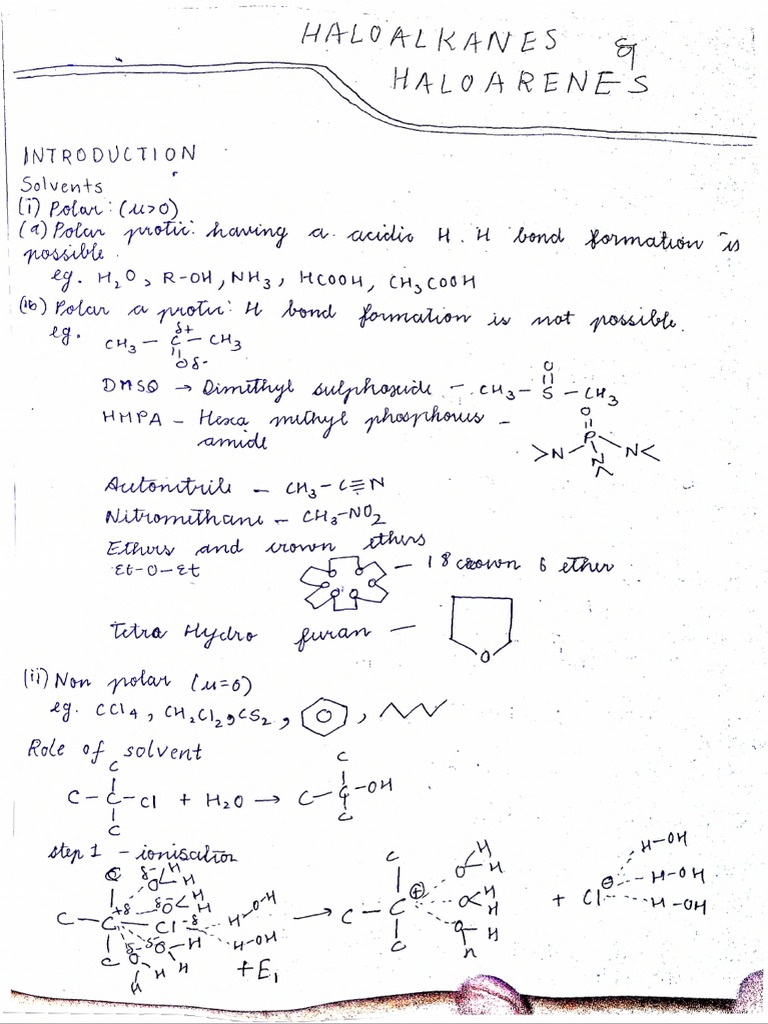 HALOALKANES &
HALOARENES
INTRODUCTION
Solvents
(i) Polar: (μ>0)
(a) Polar protic: having a acidic H. H bond formation is
possible.
eg. H₂O, R-OH, NH₃, HCOOH, CH₃COOH
(b) Polar a protic: H bond formation is not possible.
eg. CH₃ - C - CH₃
δ+
||
Oδ-
DMSO → Dimethyl sulphoxide - CH₃ - S - CH₃
O
||
HMPA - Hexa methyl phosphorus -
amide
O
||
>N - P - N<
N
Acetonitrile - CH₃-C≡N
Nitromethane - CH₃-NO₂
Ethers and crown ethers
Et-O-Et - 18 crown 6 ether
Tetra Hydro furan - O
(ii) Non polar (μ=0)
eg. CCl₄, CH₂Cl₂, CS₂, ,
Role of solvent
C
C-C-Cl + H₂O → C-C-OH
C
step 1 - ionisation
C-C-Cl → C-C⊕ + Cl⊖
H-OH
H-OH
H-OH
+E₁